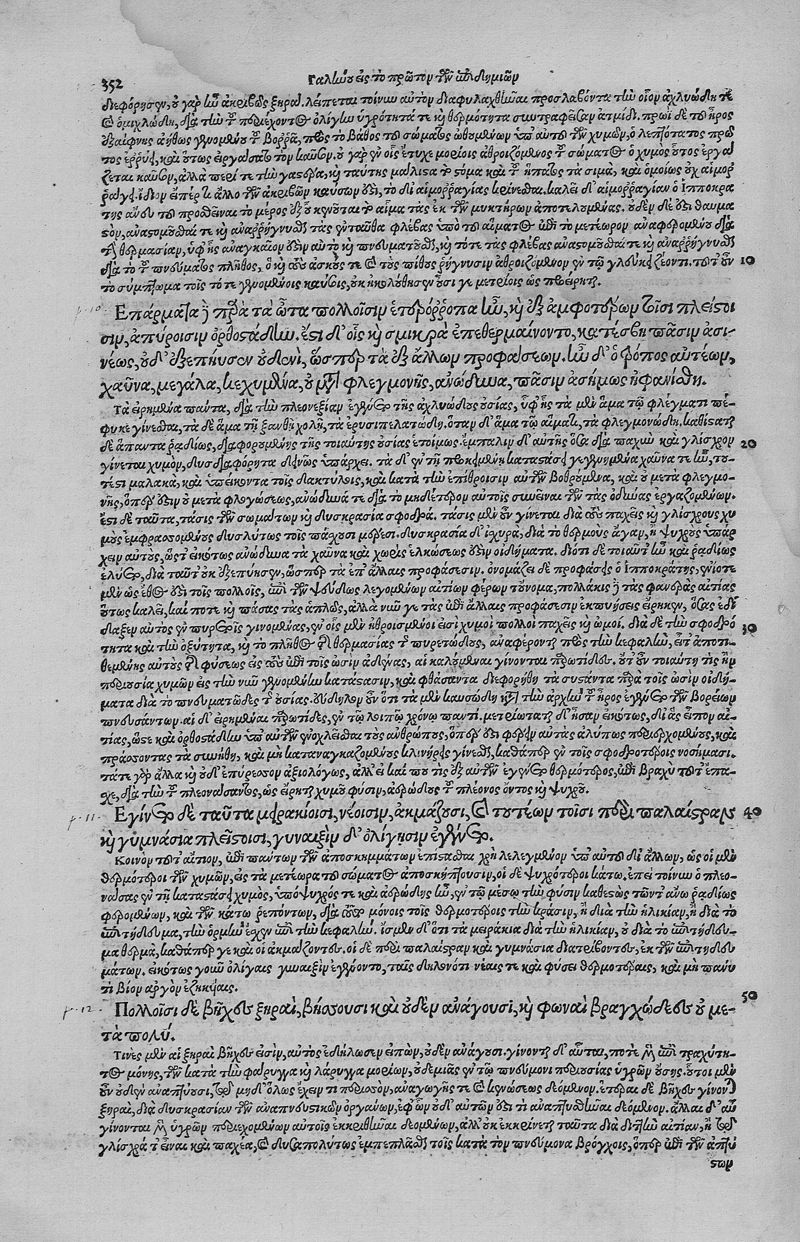 352 Γαλωοῦ εἰς τὸ πρῶτον τῶν ἐπιδημιῶν
διεφόρησεν, οὐ γὰρ ἦν ἀκριβῶς ξηρά. λείπεται τοίνυν αὐτὸν διαφυλαχθῆναι προσλαβόντα τὴν οἷον ἀχλυώδη τε
καὶ ὁμιχλώδη, διὰ τὴν τοῦ περιέχοντος ὀλίγην ὑγρότητά τε καὶ θερμότητα συντραφεῖσαν ἀτμίδα. πρωὶ δὲ τοῦ ἦρος
ἐξαίφνης ἀήθως γενομένου τοῦ βορρᾶ, πρὸς τὸ βάθος τοῦ σώματος ὠθουμένων ὑπ' αὐτοῦ τῶν χυμῶν, ὁ λεπτότατος πρῶ-
τος ἐρρύη, καὶ οὗτος εἰργάσατο τὸν καῦσον. οὐ γὰρ ἐν οἷς ἔτυχε μορίοις ἀθροιζόμενος τοῦ σώματος ὁ χυμὸς οὗτος ἐργά-
ζεται καῦσον, ἀλλὰ περί τε τὴν γαστέρα, καὶ ταύτης μάλιστα τὸ στόμα καὶ τοῦ ἥπατος τὰ σιμὰ, καὶ ὁμοίως οὐχ αἱμορ-
ραγεῖ. ἴδιον εἴπερ τι ἄλλο τῶν ἀκριβῶν καύσων ἐστὶ, τὸ δι' αἱμορραγίας κρίνεσθαι. καλεῖ δ' αἱμορραγίαν ὁ Ἱπποκρά-
της ἄνευ τοῦ προσθεῖναι τὸ μέρος ἐξ οὗ κενοῦται τὸ αἷμα τὰς ἐκ τῶν μυκτήρων ἀποτελουμένας. οὐδὲν δέ ἐστι θαυμα-
στὸν, ἀναστομοῦσθαί τε καὶ ἀναρρήγνυσθαι τὰς ἐνταῦθα φλέβας ὑπὸ τοῦ αἵματος ἐπὶ τὸ μετέωρον ἀναφερομένου διὰ
τὴν θερμασίαν, ὑφ' ἧς ἀναγκαῖόν ἐστιν αὐτὸ καὶ πνευματοῦσθαι, καὶ τότε τὰς φλέβας ἀναστομοῦσθαί τε καὶ ἀναρρήγνυσθαι
διὰ τὸ τοῦ πνεύματος πλῆθος, ὃ καὶ τοὺς ἀσκούς τε καὶ τοὺς πίθους ῥήγνυσιν ἀθροιζόμενον ἐν τῷ γλεύκει ζέοντι. τοῦτ' οὖν 10
τὸ σύμπτωμα τοῖς τότε γενομένοις καύσοις, οὐκ ἠκολούθησεν οὖσί γε μετρίοις ὡς προείρηται.
p. 10. Ἐπάρματα δὲ παρὰ τὰ ὦτα πολλοῖσιν ἑτερόρροπα ἦν, καὶ ἐξ ἀμφοτέρων τοῖσι πλείστοι
σιν, ἀπύροισιν ὀρθοστάδην. ἔστι δ' οἷς καὶ σμικρὰ ἐπεθερμαίνοντο, κατέσβη πᾶσιν ἀσι-
νέως, οὐδ' ἐξεπύησεν οὐδενὶ, ὥσπερ τὰ ἐξ ἄλλων προφασίων. ἦν δ' ὁ τρόπος αὐτέων,
χαῦνα, μεγάλα, κεχυμένα, οὐ μετὰ φλεγμονῆς, ἀνώδυνα, πᾶσιν ἀσήμως ἠφανίσθη.
Τὰ εἰρημένα πάντα, διὰ τὴν πλεονεξίαν ἐγένετο τῆς ἀχλυώδους οὐσίας, ὑφ' ἧς τὰ μὲν ἅμα τῷ φλέγματι πέ-
φυκε γίνεσθαι, τὰ δὲ ἅμα τῇ ξανθῇ χολῇ, τὰ ἐρυσιπελατώδη. ὅταν δ' ἅμα τῷ αἵματι, τὰ φλεγμονώδη. καθίσταται
δὲ ἅπαντα ῥᾳδίως, διαφορουμένης τῆς τοιαύτης οὐσίας ἑτοίμως. ἔμπαλιν δ' αὐτῆς ὅσα διὰ παχὺν καὶ γλίσχρον 20
γίνεται χυμὸν, δυσδιαφόρητα δεινῶς ὑπάρχει. τὰ δ' ἐν τῇ προκειμένῃ καταστάσει γεγενημένα χαῦνά τε ἦν, του-
τέστι μαλακὰ, καὶ ὑπείκοντα τοῖς δακτύλοις, καὶ κατὰ τὴν ἐπέρεισιν αὐτῶν βοθρούμενα, καὶ οὐ μετὰ φλεγμο-
νῆς, ὅπερ ἐστὶν οὐ μετὰ φλογώσεως, ἀνώδυνά τε διὰ τὸ μηδέτερον αὐτοῖς συνεῖναι τῶν τὰς ὀδύνας ἐργαζομένων.
ἔστι δὲ ταῦτα, τάσις τῶν σωμάτων καὶ δυσκρασία σφοδρά. τάσις μὲν οὖν γίνεται διὰ τοὺς παχεῖς καὶ γλίσχρους χυ
μοὺς ἐμφρασσομένους δυσλύτως τοῖς πάσχουσι μορίοις. δυσκρασία δ' ἰσχυρὰ, διὰ τὸ θερμοὺς ἄγαν, ἢ ψυχροὺς ὑπάρ
χειν αὐτοὺς, ὥστ' εἰκότως ἀνώδυνα τὰ χαῦνα καὶ χωρὶς ἑλκώσεως ἐστὶν οἰδήματα. διότι δὲ τοιαῦτ' ἦν καὶ ῥᾳδίως
ἐλύετο, διὰ ταῦτ' οὐκ ἐξεπύησεν, ὥσπερ τὰ ἐπ' ἄλλαις προφάσεσιν. ὀνομάζει δὲ προφάσεις ὁ Ἱπποκράτης, ἐνίοτε
μὲν ὡς ἔθος ἐστὶ τοῖς πολλοῖς, ἐπὶ τῶν ψευδῶς λεγομένων αἰτίων φέρων τοὔνομα, πολλάκις δὲ τὰς φανερὰς αἰτίας
οὕτως καλεῖ, καί ποτε καὶ πάσας τὰς ἁπλῶς, ἀλλὰ νῦν γε τὰς ἐπὶ ἄλλαις προφάσεσιν ἐκπυήσεις εἴρηκεν, ὅσας ἐδί
δαξεν αὐτὸς ἐν πυρετοῖς γινομένας, ἐν οἷς μὲν ἠθροισμένοι εἰσὶ χυμοὶ πολλοὶ παχεῖς καὶ ὠμοί. διὰ δὲ τὴν σφοδρό 30
τητα καὶ τὴν ὀξύτητα, καὶ τὸ πλῆθος τῆς θερμασίας τοῦ πυρετώδους, ἀναφέρονται πρὸς τὴν κεφαλὴν, εἶτ' ἀποτι-
θεμένης αὐτοὺς τῆς φύσεως εἰς τοὺς ἐπὶ τοῖς ὠσὶν ἀδένας, αἱ καλούμεναι γίνονται παρωτίδες. οὐ τοιαύτη τις ἦν
περιουσία χυμῶν εἰς τὴν νῦν γενομένην κατάστασιν, καὶ φθάσαντα διεφορήθη τὰ συστάντα παρὰ τοῖς ὠσὶν οἰδή-
ματα διὰ τὸ πνευματῶδες τῆς οὐσίας. εὔδηλον οὖν ὅτι τὰ μὲν καυσώδη κατὰ τὴν ἀρχὴν τοῦ ἦρος ἐγένετο τῶν βορείων
πνευσάντων. αἱ δ' εἰρημέναι παρωτίδες, ἐν τῷ λοιπῷ χρόνῳ παντί. μετριώταται δ' ἦσαν εἰκότως, δι' ἃς εἶπον αἰ-
τίας, ὥστε καὶ ὀρθοστάδην ὑπ' αὐτῶν ἐνοχλεῖσθαι τοὺς ἀνθρώπους, ὅπερ ἐστὶ φέρειν αὐτὰς ἀλύπως περιερχομένους, καὶ
πράσσοντας τὰ συνήθη, καὶ μὴ καταναγκαζομένους κλινήρεις γίνεσθαι, καθάπερ ἐν τοῖς σφοδροτέροις νοσήμασι.
τά τε γὰρ ἄλλα καὶ οὐδ' ἐπύρεσσον ἀξιολόγως, ἀλλ' εἰ καί που τὶς ἐξ αὐτῶν ἐγένετο θερμότερος, ἐπὶ βραχὺ τοῦτ' ἔπα-
σχε, διὰ τὴν τοῦ πλεονάσαντος, ὡς εἴρηται χυμοῦ φύσιν, ἀερώδους τοῦ πλέονος ὄντος καὶ ψυχροῦ.
p. 11. Ἐγίνετο δὲ ταῦτα μειρακίοισι, νέοισιν, ἀκμάζουσι, καὶ τουτέων τοῖσι περὶ παλαίστρην 40
καὶ γυμνάσια πλείστοισι, γυναιξὶν δ' ὀλίγῃσιν ἐγένετο.
Κοινὸν τοῦτ' αἴτιον, ἐπὶ πάντων τῶν ἀποσκημμάτων ἐπίστασθαι χρὴ λελεγμένον ὑπ' αὐτοῦ δι' ἄλλων, ὡς οἱ μὲν
θερμότεροι τῶν χυμῶν, εἰς τὰ μετέωρα τοῦ σώματος ἀποσκήπτουσιν, οἱ δὲ ψυχρότεροι κάτω. ἐπεὶ τοίνυν ὁ πλεο-
νάσας ἐν τῇ καταστάσει χυμὸς, ὑπόψυχρός τε καὶ ἀερώδης ἦν, ἐν τῷ μέσῳ τὴν φύσιν καθεστὼς τῶν τ' ἄνω ῥᾳδίως
φερομένων, καὶ τῶν κάτω ῥεπόντων, διὰ τοῦτο μόνοις τοῖς θερμοτέροις τὴν κρᾶσιν, ἢ διὰ τὴν ἡλικίαν, ἢ διὰ τὸ
ἐπιτήδευμα, τὴν ὁρμὴν ἔσχεν ἐπὶ τὴν κεφαλήν. ἴσμεν δ' ὅτι τὰ μειράκια διὰ τὴν ἡλικίαν, οὐ διὰ τὸ ἐπιτήδευ-
μα θερμὰ, καθάπερ γε καὶ οἱ ἀκμάζοντες. οἱ δὲ περὶ παλαίστραν καὶ γυμνάσια διατρίβοντες, ἐκ τῶν ἐπιτηδευ-
μάτων. εἰκότως γοῦν ὀλίγαις γυναιξὶν ἐγένοντο, ταῖς δηλονότι νέαις τε καὶ φύσει θερμοτέραις, καὶ μὴ πάνυ
τι βίον ἀργὸν ἐζηκυίαις.
50
p. 12. Πολλοῖσι δὲ βῆχες ξηραὶ, βήσσουσι καὶ οὐδὲν ἀνάγουσι, καὶ φωναὶ βραγχώδεες οὐ με-
τὰ πολύ.
Τίνες μὲν αἱ ξηραὶ βῆχές εἰσιν, αὐτὸς ἐδήλωσεν εἰπὼν, οὐδὲν ἀνάγουσι. γίνονται δ' αὗται, ποτὲ μὲν ἐπὶ τραχύτη-
τος μόνης, τῶν κατὰ τὴν φάρυγγα καὶ λάρυγγα μορίων, οὐδεμιᾶς ἐν τῷ πνεύμονι περιουσίας ὑγρῶν οὔσης. οὗτοι μὲν
οὖν οὐδὲν ἀναπτύουσι, τῷ μηδ' ὅλως ἔχειν τι περιττὸν, ἀναγωγῆς τε καὶ κενώσεως δεόμενον. ἕτεραι δὲ βῆχες γίνον)
ξηραὶ, διὰ δυσκρασίαν τῶν ἀναπνευστικῶν ὀργάνων, ἐφ' ὧν οὐδ' αὐτῶν ἐστί τι ἀναπτυσθῆναι δεόμενον. ἄλλαι δ' αὖ
γίνονται μὲν ὑγρῶν περιεχομένων αὐτοῖς ἐκκριθῆναι δεομένων, ἀλλ' οὐκ ἐκκρίνεται ταῦτα διὰ διττὴν αἰτίαν, ἢ τῷ
γλίσχρα τ' εἶναι καὶ παχέα, καὶ δυσαπολύτως ἐμπεπλάσθαι τοῖς κατὰ τὸν πνεύμονα βρόγχοις, ὅπερ ἐπὶ τῶν ἀπτύ
στων